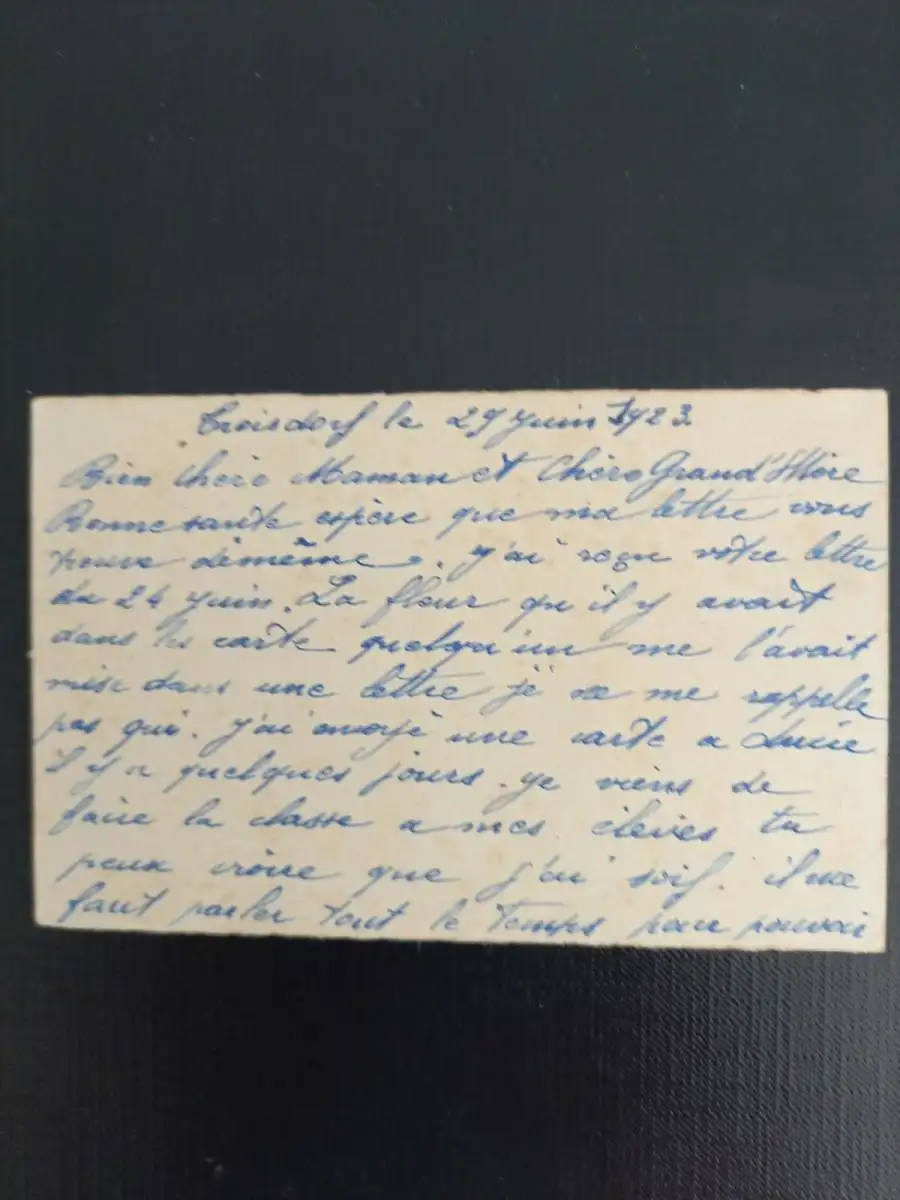 Troisdorf le 29 Juin 1923
Bien Chère Maman et Chère Grand'Mère
Bonne sante espère que ma lettre vous
trouve dêmême. J'ai reçu votre lettre
du 24 Juin. La fleur qu'il y avait
dans la carte quelqu'un me l'avait
mise dans une lettre je ne me rappelle
pas qui. J'ai envoyé une carte a Lucie
Il y a quelques jours. Je viens de
faire la classe a mes élèves tu
peux croire que j'ai soif. il me
faut parler tout le temps pour pouvoir